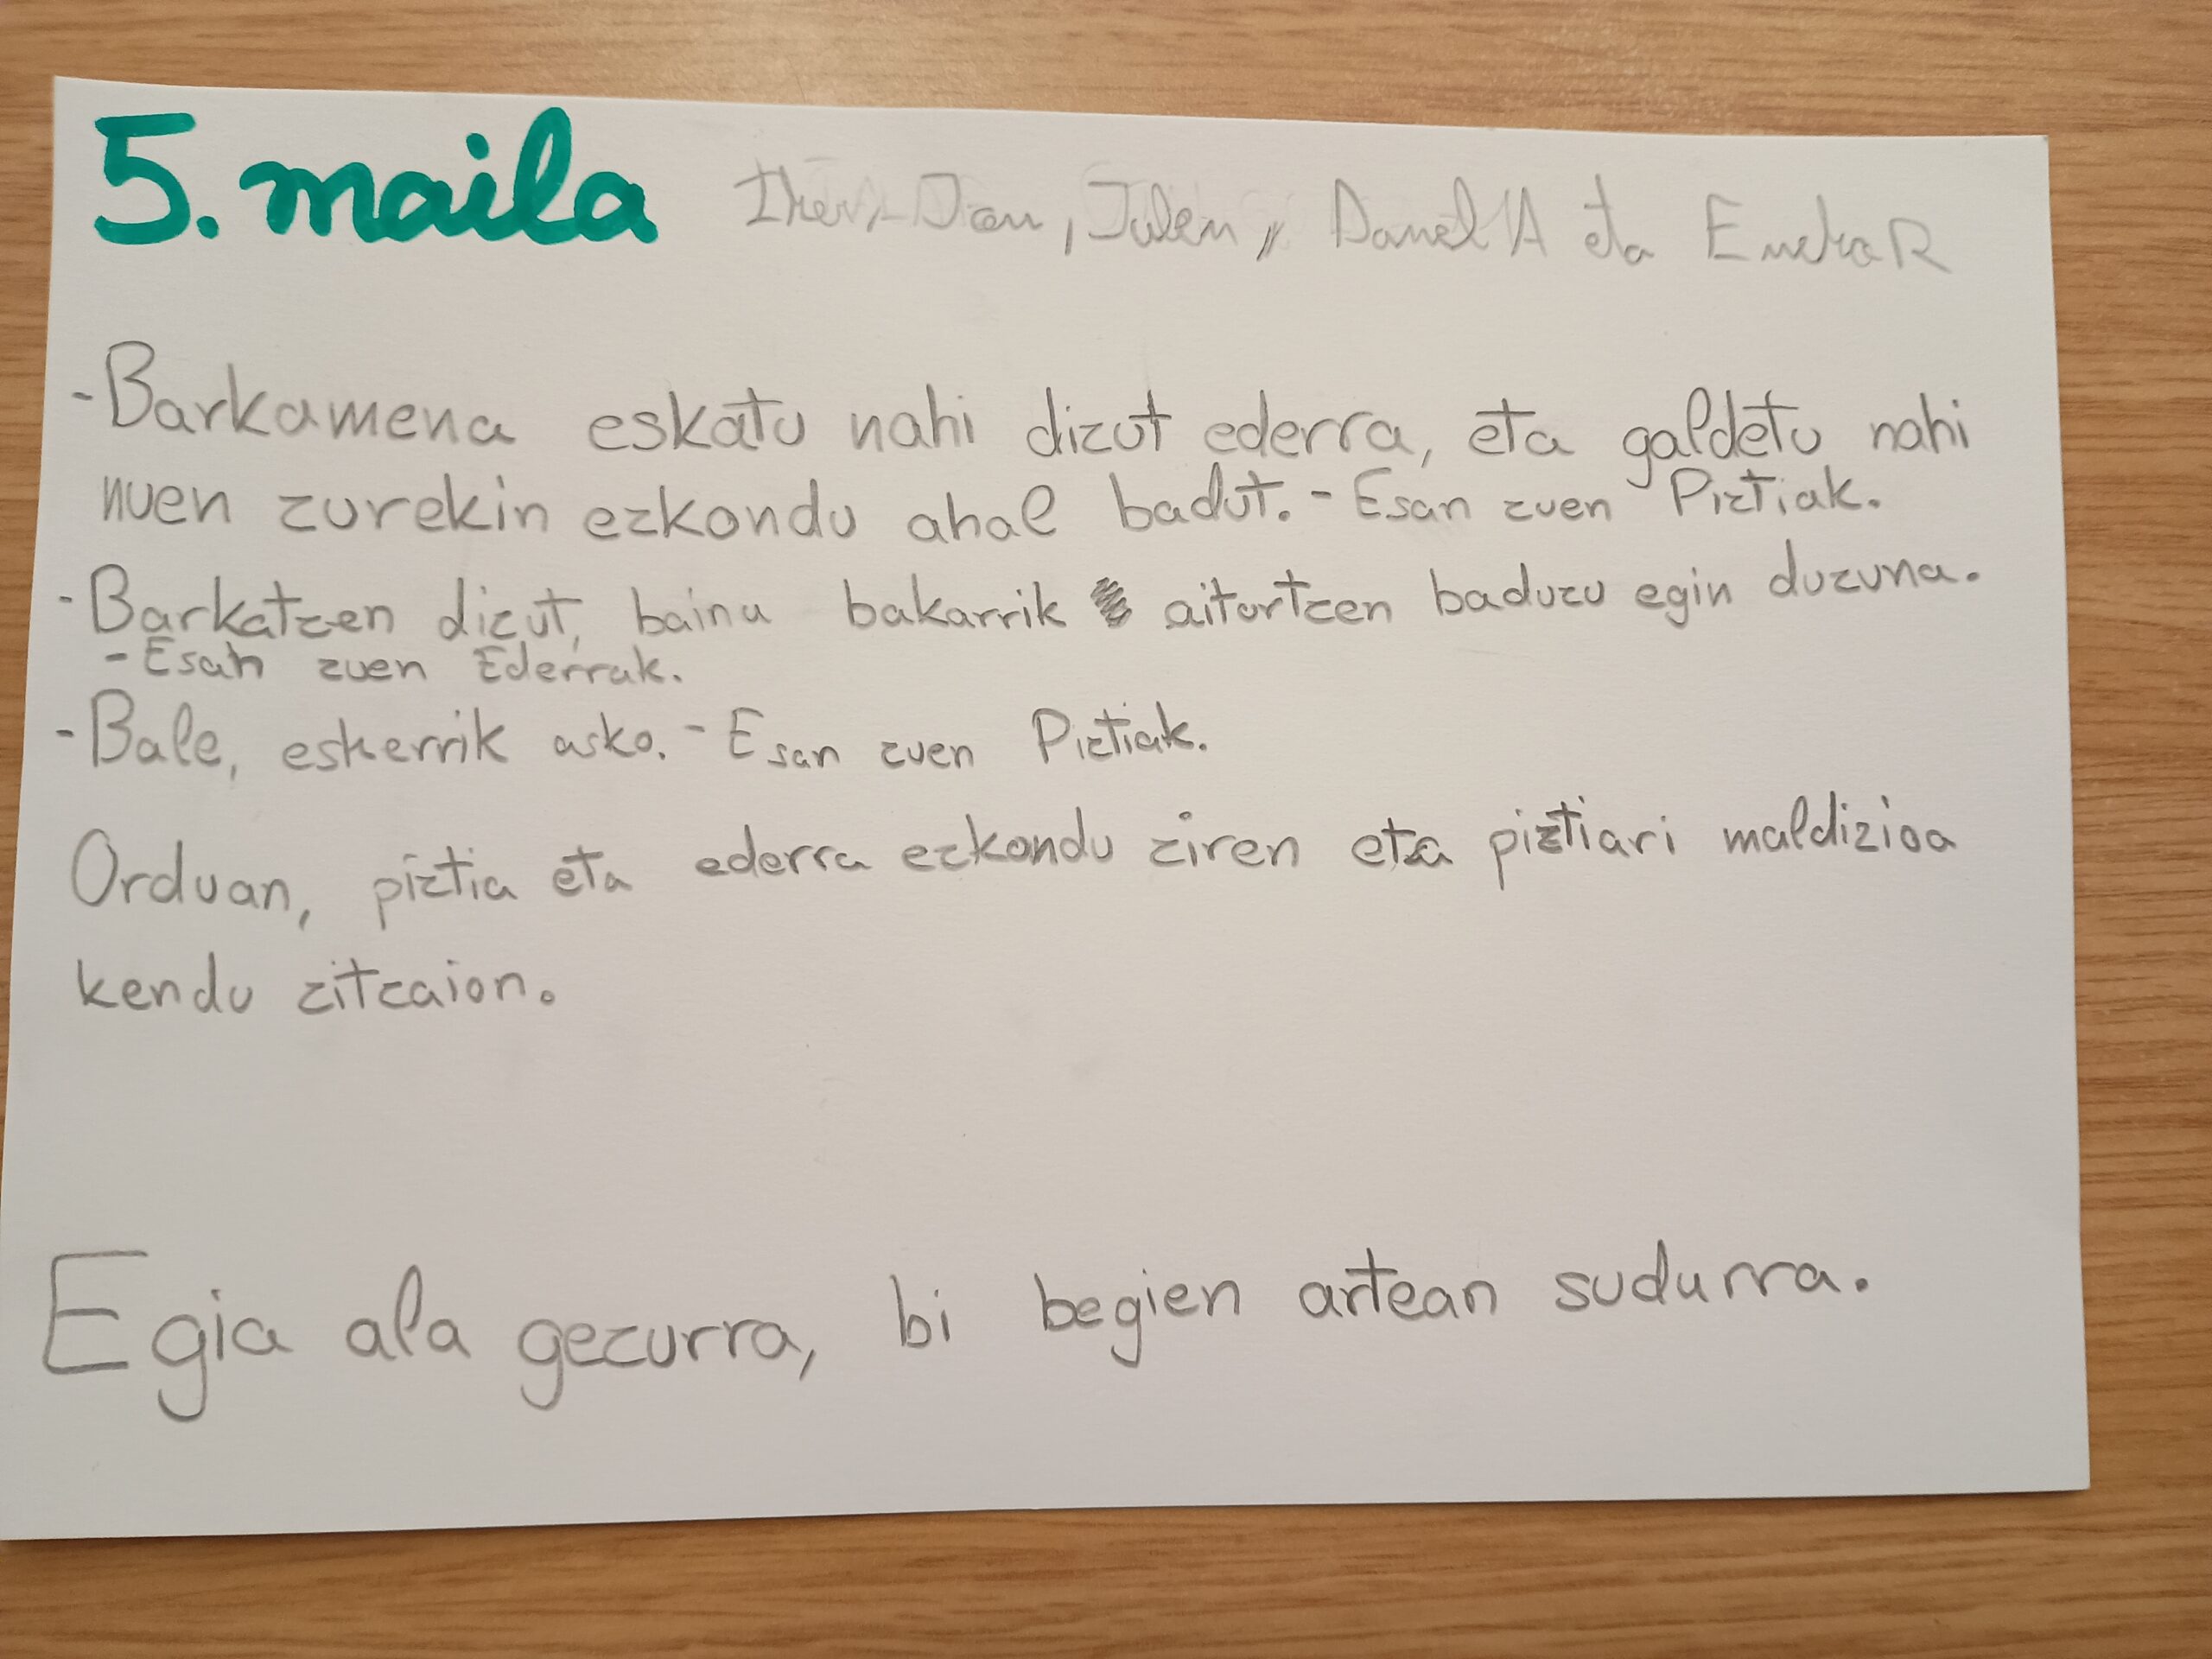 5. maila Iker, Jon, Julen, Danel A eta Eneko R
-Barkamena eskatu nahi dizut ederra, eta galdetu nahi
nuen zurekin ezkondu ahal badut. - Esan zuen Piztiak.
-Barkatzen dizut, bainu bakarrik aitortzen baduzu egin duzuna.
-Esan zuen Ederrak.
-Bale, eskerrik asko. - Esan zuen Piztiak.
Orduan, piztia eta ederra ezkondu ziren eta piztiari maldizioa
kendu zitzaion.
Egia ala gezurra, bi begien artean sudurra.